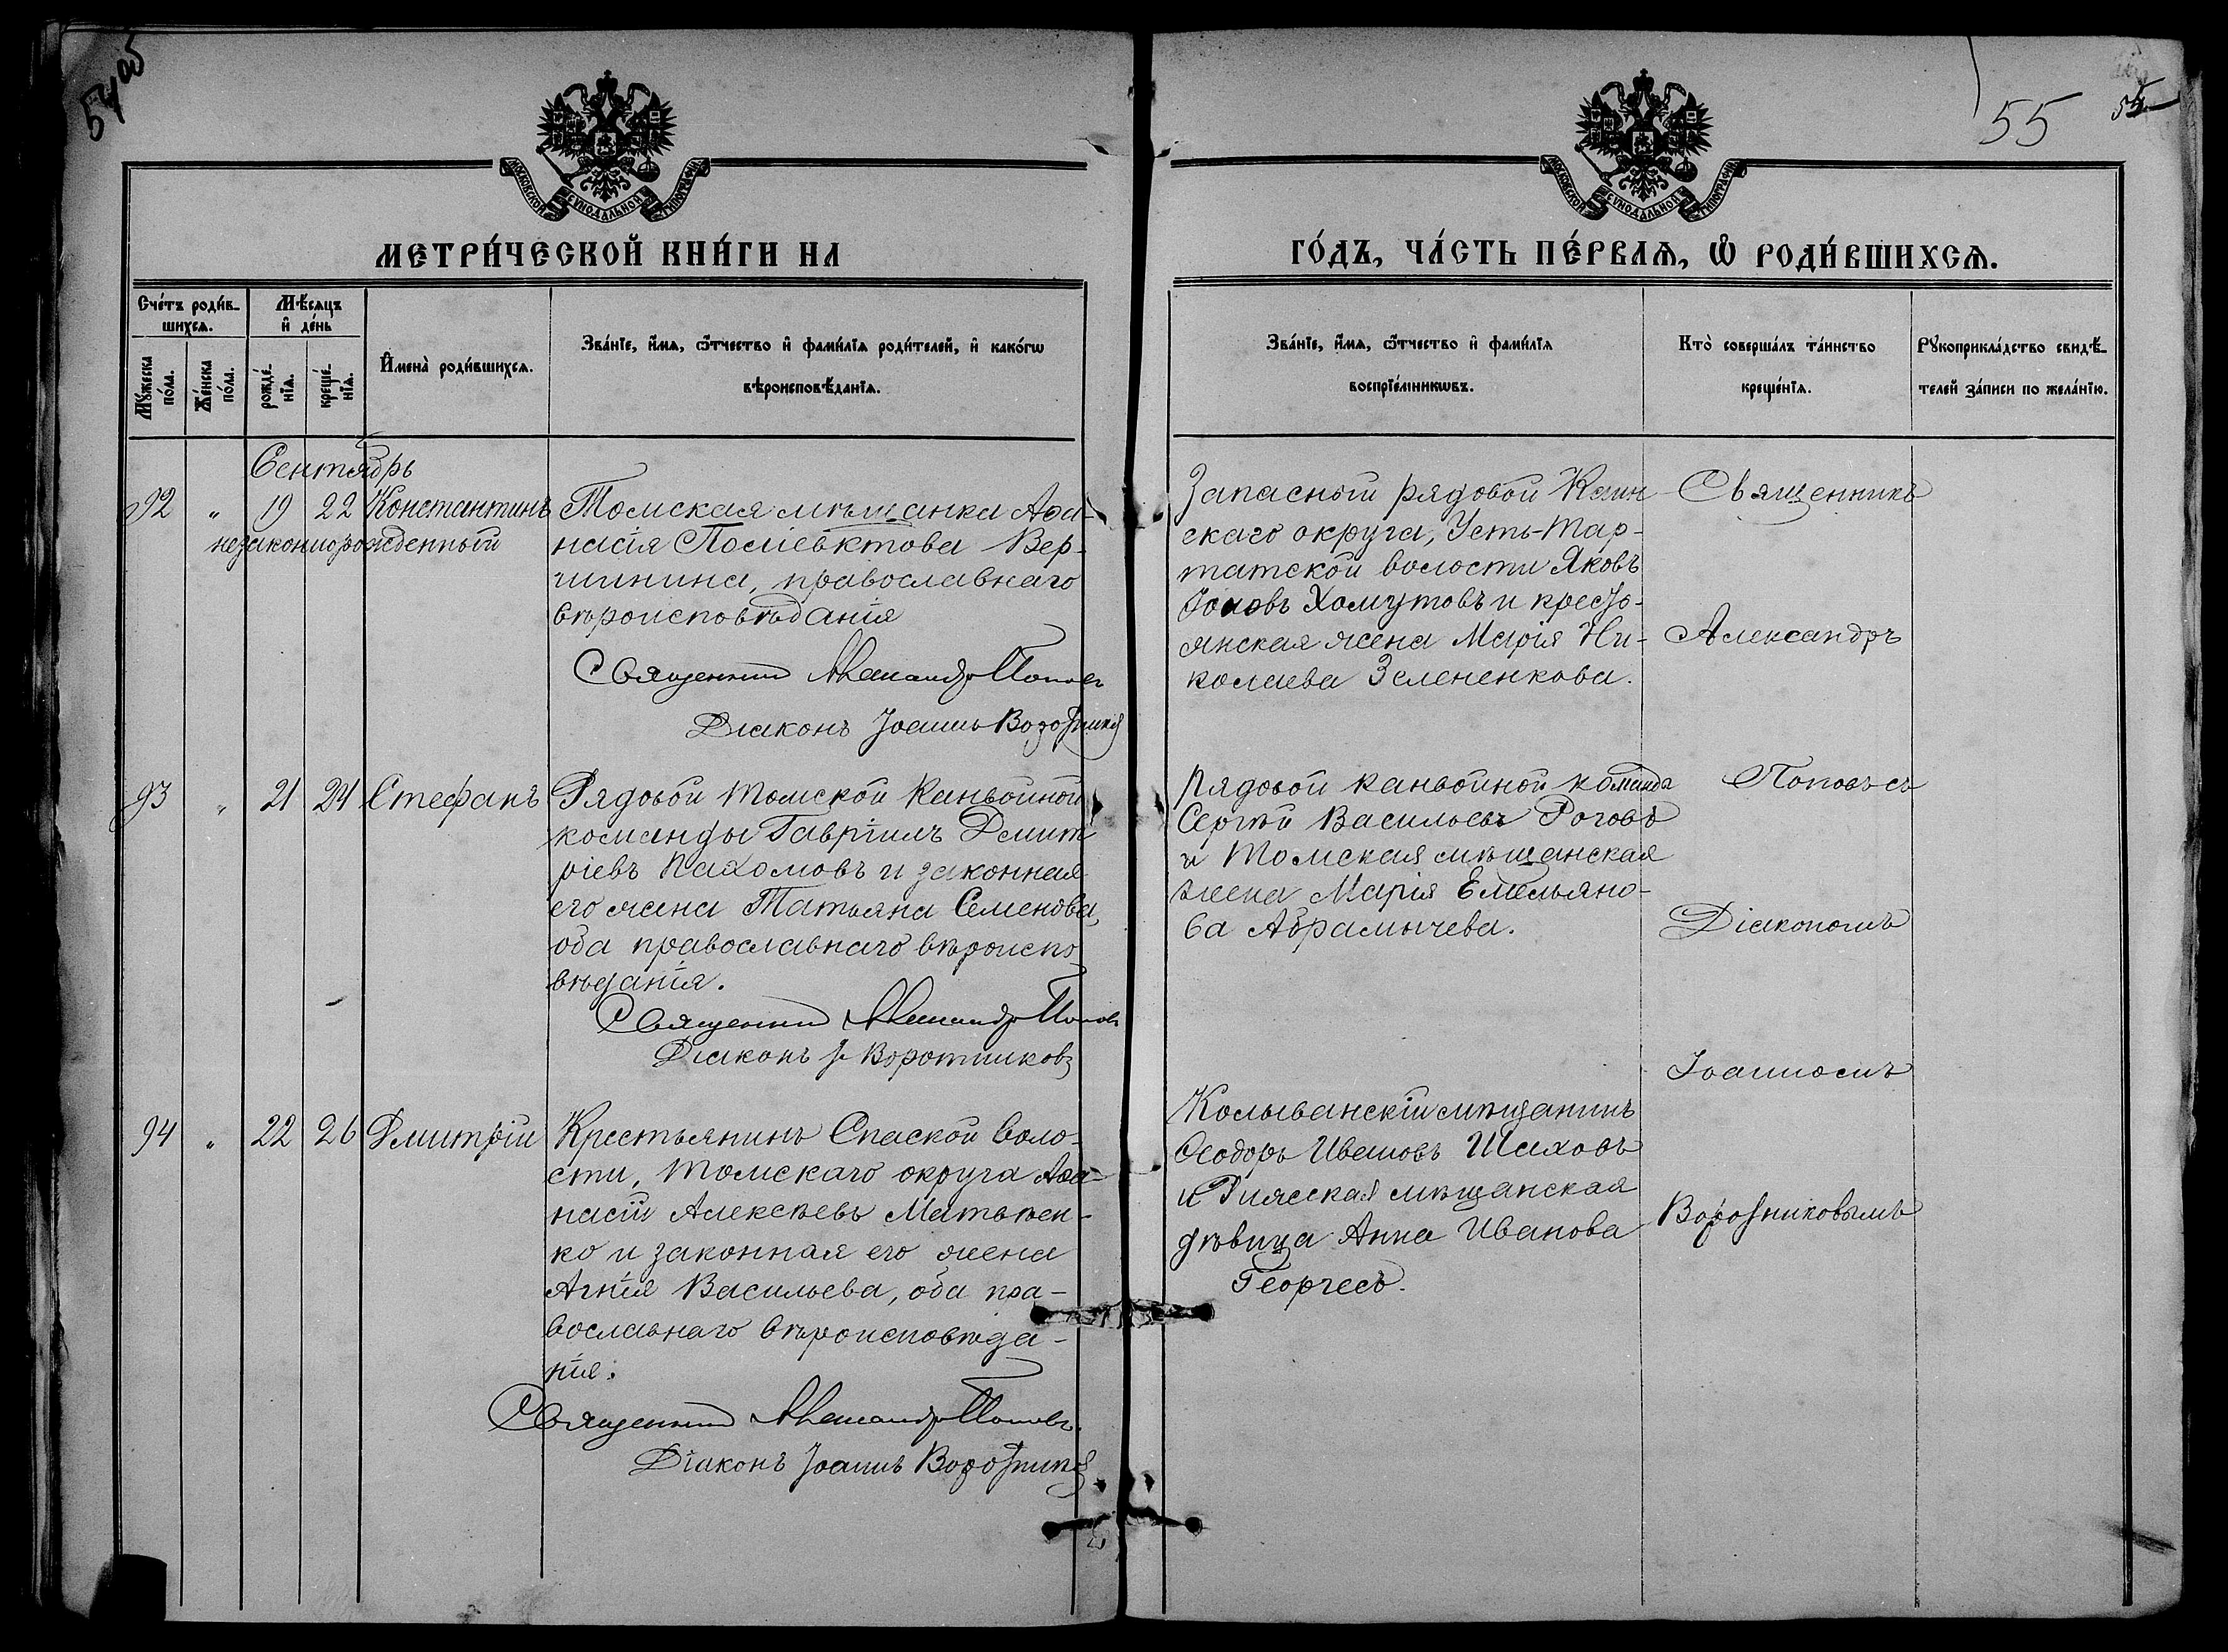 54об
55
55
МОСКОВСКОЙ СѴНОДАЛЬНОЙ ТИПОГРАФІИ
МОСКОВСКОЙ СѴНОДАЛЬНОЙ ТИПОГРАФІИ
МЕТРИ́ЧЕСКОЙ КНИ́ГИ НА
ГО́ДЪ, ЧА́СТЬ ПЕ́РВАѦ, Ѡ҆ РОДИ́ВШИХСѦ.
Сче́тъ роди́в-
шихсѧ.
Мꙋ́жеска по́ла.
Же́нска по́ла.
Мѣ́сѧцъ
и҆ де́нь
рожде́нїѧ.
креще́нїѧ.
И҆мена̀ роди́вшихсѧ.
Зва́нїе, и҆́мѧ, ѻ҆́тчество и҆ фами́лїѧ роди́телей, и҆ како́гѡ
вѣроисповѣ́данїѧ.
Зва́нїе, и҆́мѧ, ѻ҆́тчество и҆ фами́лїѧ
воспрїе́мникѡвъ.
Кто̀ соверша́лъ та́инство
креще́нїѧ.
Рꙋкоприкла́дство свидѣ́-
телей за́писи по жела́нїю.
Сентябрь
92 „ 19 22 Константинъ
незаконнорожденный
Томская мѣщанка Аѳа-
насія Поліевктова Вер-
шинина, православнаго
вѣроисповѣданія
Священникъ Александръ Поповъ
Діаконъ Іоаннъ Воротников
Запасный рядовой Каин
скаго округа, Усть-Тар-
татской волости Яковъ
Іоновъ Хомутовъ и кресть-
янская жена Марія Ни-
колаева Зелененкова.
Священникъ
Александръ
93 „ 21 24 Стефанъ
Рядовой Томской Канвойной
команды Гавріилъ Дмит
ріевъ Пахомовъ и законная
его жена Татьяна Семенова,
оба православнаго вѣроиспо
вѣданія.
Священникъ Александръ Поповъ
Діаконъ І. Воротниковъ
Рядовой канвойной команды
Сергѣй Васильевъ Роговъ
и Томская мѣщанская
жена Марія Емельяно-
ва Абрамычева.
Поповъ съ
Діакономъ
94 „ 22 26 Дмитрій
Крестьянинъ Спаской воло-
сти, Томскаго округа Аѳа-
насій Алексѣевъ Матвѣен-
ко и законная его жена
Агнія Васильева, оба пра-
вославнаго вѣроисповѣда-
нія.
Священникъ Александръ Поповъ.
Діаконъ Іоаннъ Воротников
Колыванскій мѣщанинъ
Ѳеодоръ Ивановъ Шаховъ
и мѣщанская
дѣвица Анна Иванова
Георгесъ.
Іоанномъ
Воротниковымъ